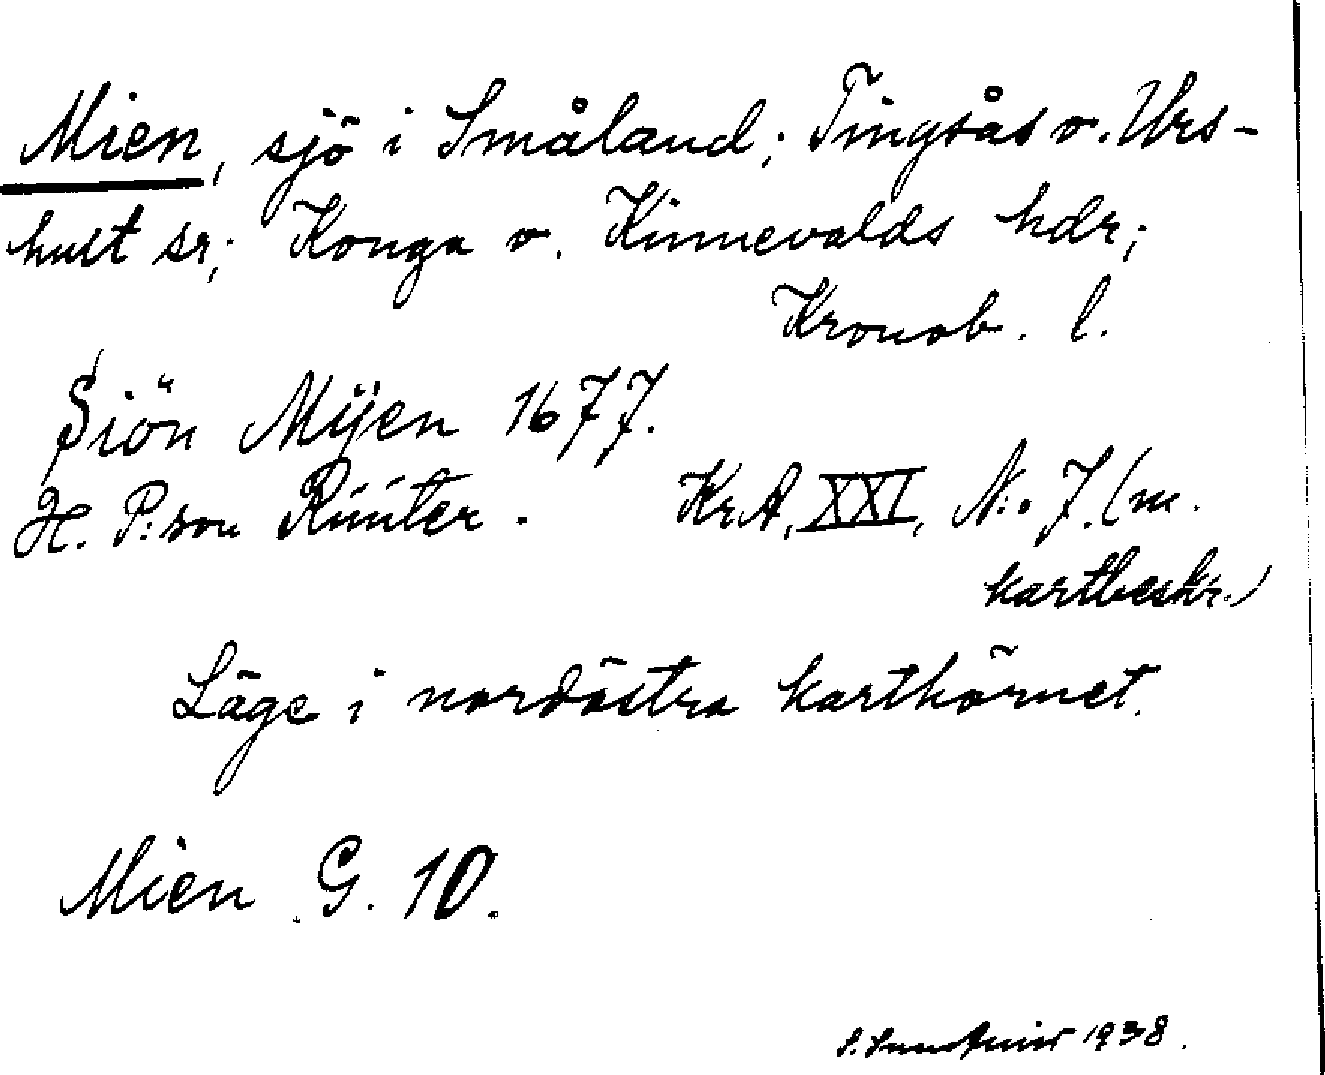 Mien, sjö i Småland; Tingsås o. Urs-
hult sr; Konga o. Kinnevalds hdr;
Kronob. l.
Siön Mÿen 1677.
H. P:son Rüüter. KrA, XXI, N:o 7. (m.
kartbeskr.)
Läge i nordöstra karthörnet.
Mien G. 10.
1938.